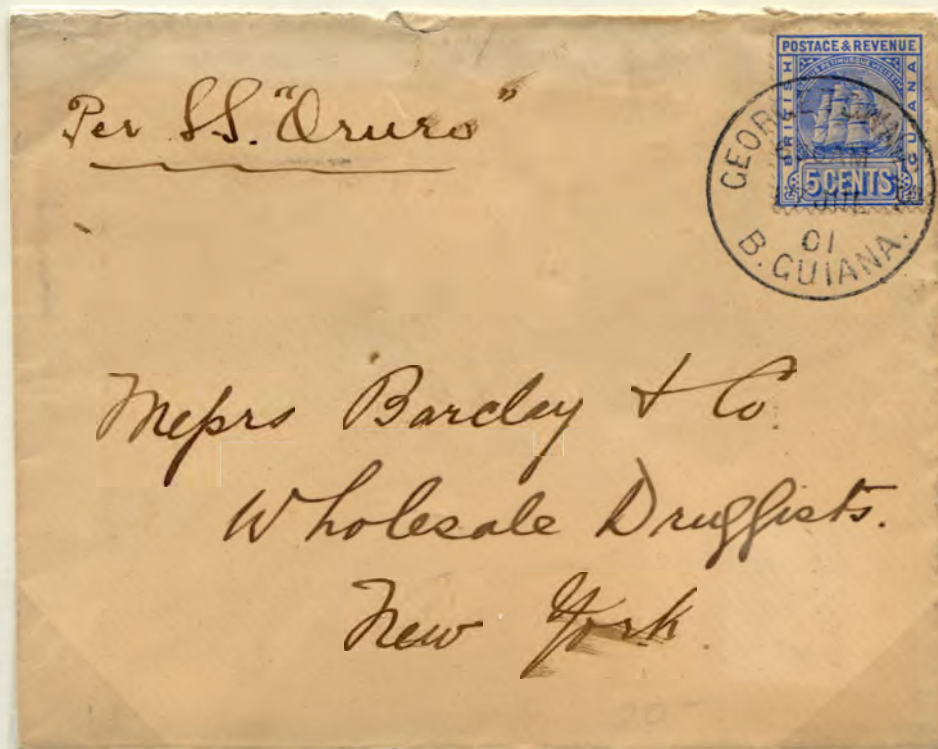 Per S.S. "Oruro"
POSTAGE & REVENUE
BRITISH
GUIANA
5 CENTS
GEORGETOWN
AM
JUL
01
B. GUIANA.
Messrs Barclay & Co.
Wholesale Druggists.
New York.
20-